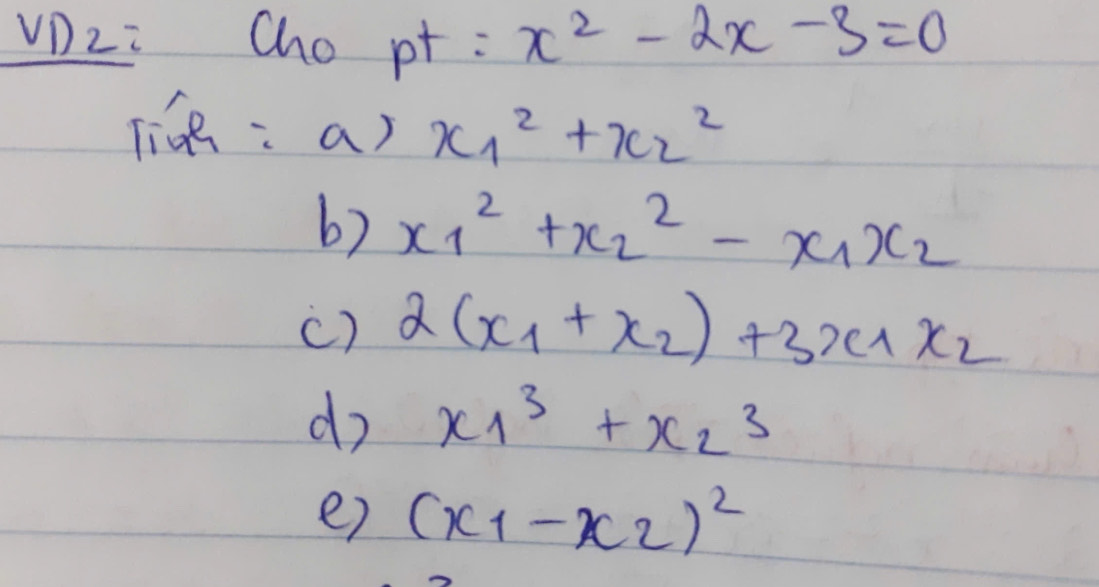 VD2: Cho pt: x² - 2x - 3 = 0
Tính: a) x₁² + x₂²
b) x₁² + x₂² - x₁x₂
c) 2(x₁ + x₂) + 3x₁x₂
d) x₁³ + x₂³
e) (x₁ - x₂)²